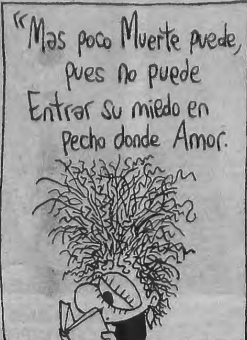 “Mas poco Muerte puede,
pues no puede
Entrar su miedo en
pecho donde Amor.